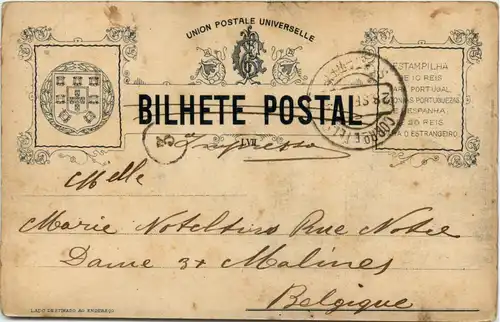 UNION POSTALE UNIVERSELLE
ESTAMPILHA
DE 10 REIS
PARA PORTUGAL
COLONIAS PORTUGUEZAS
E HESPANHA,
20 REIS
PARA O ESTRANGEIRO
BILHETE POSTAL
Impresso
Melle
Marie Rue Notre
Dame 31 Malines
Belgique
LADO DESTINADO AO ENDEREÇO